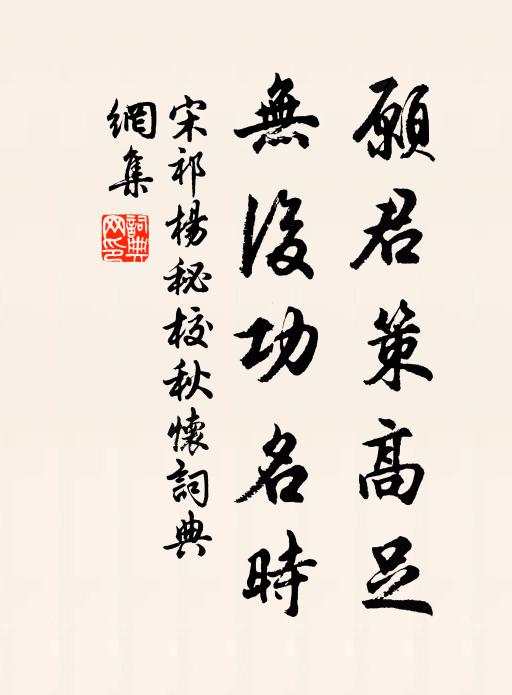 願君策高足
無後功名時
宋祁楊秘校秋懷詞典
網集
詞典網印